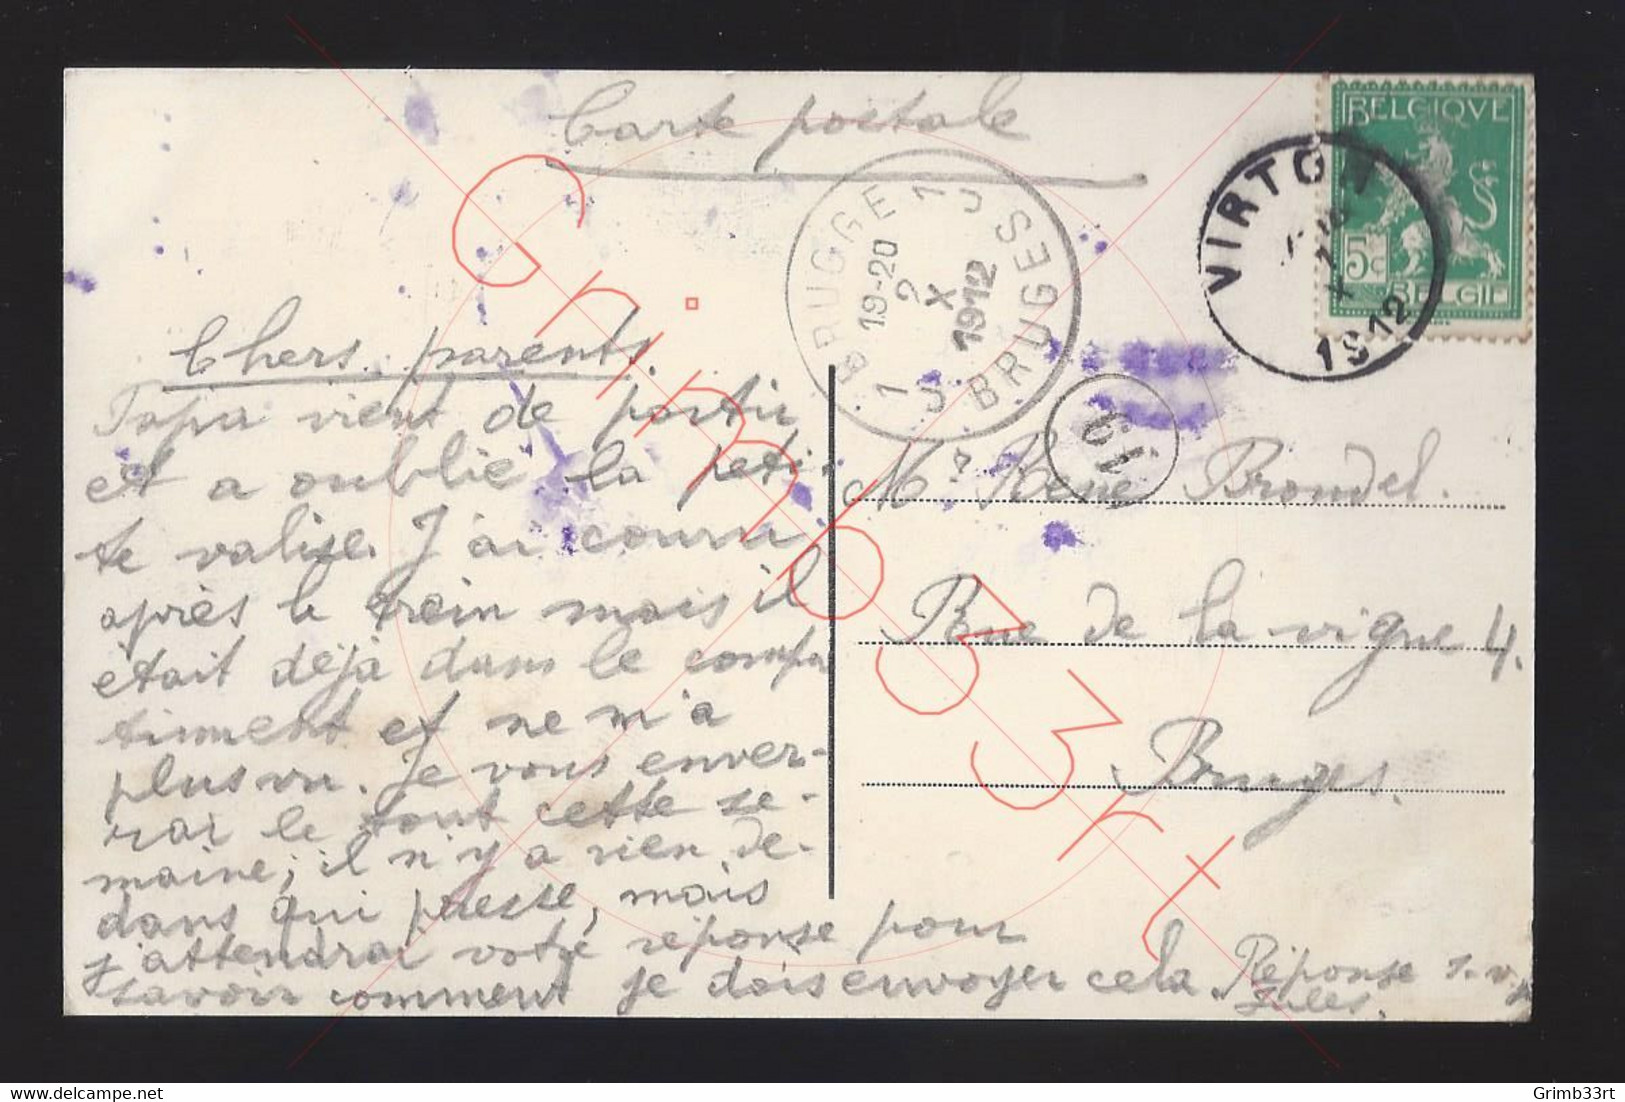 Carte postale
BELGIQVE
5c 5c
BELGIË
VIRTON
X
1912
1 BRUGGE 1
19-20
2
X
1912
1 BRUGES
19
Chers parents.
Papa vient de partir
et a oublié la peti-
te valise. J'ai couru
après le train mais il
était déjà dans le compar
timent et ne m'a
plus vu. Je vous enver-
rai le tout cette se-
maine; il n'y a rien de-
dans qui presse, mais
j'attendrai votre réponse pour
savoir comment je dois envoyer cela.
Réponse s.v.p
Jules.
Mr René Brondel.
Rue de la vigne 4.
Bruges.
Grimb33rt
delcampe.net
Grimb33rt